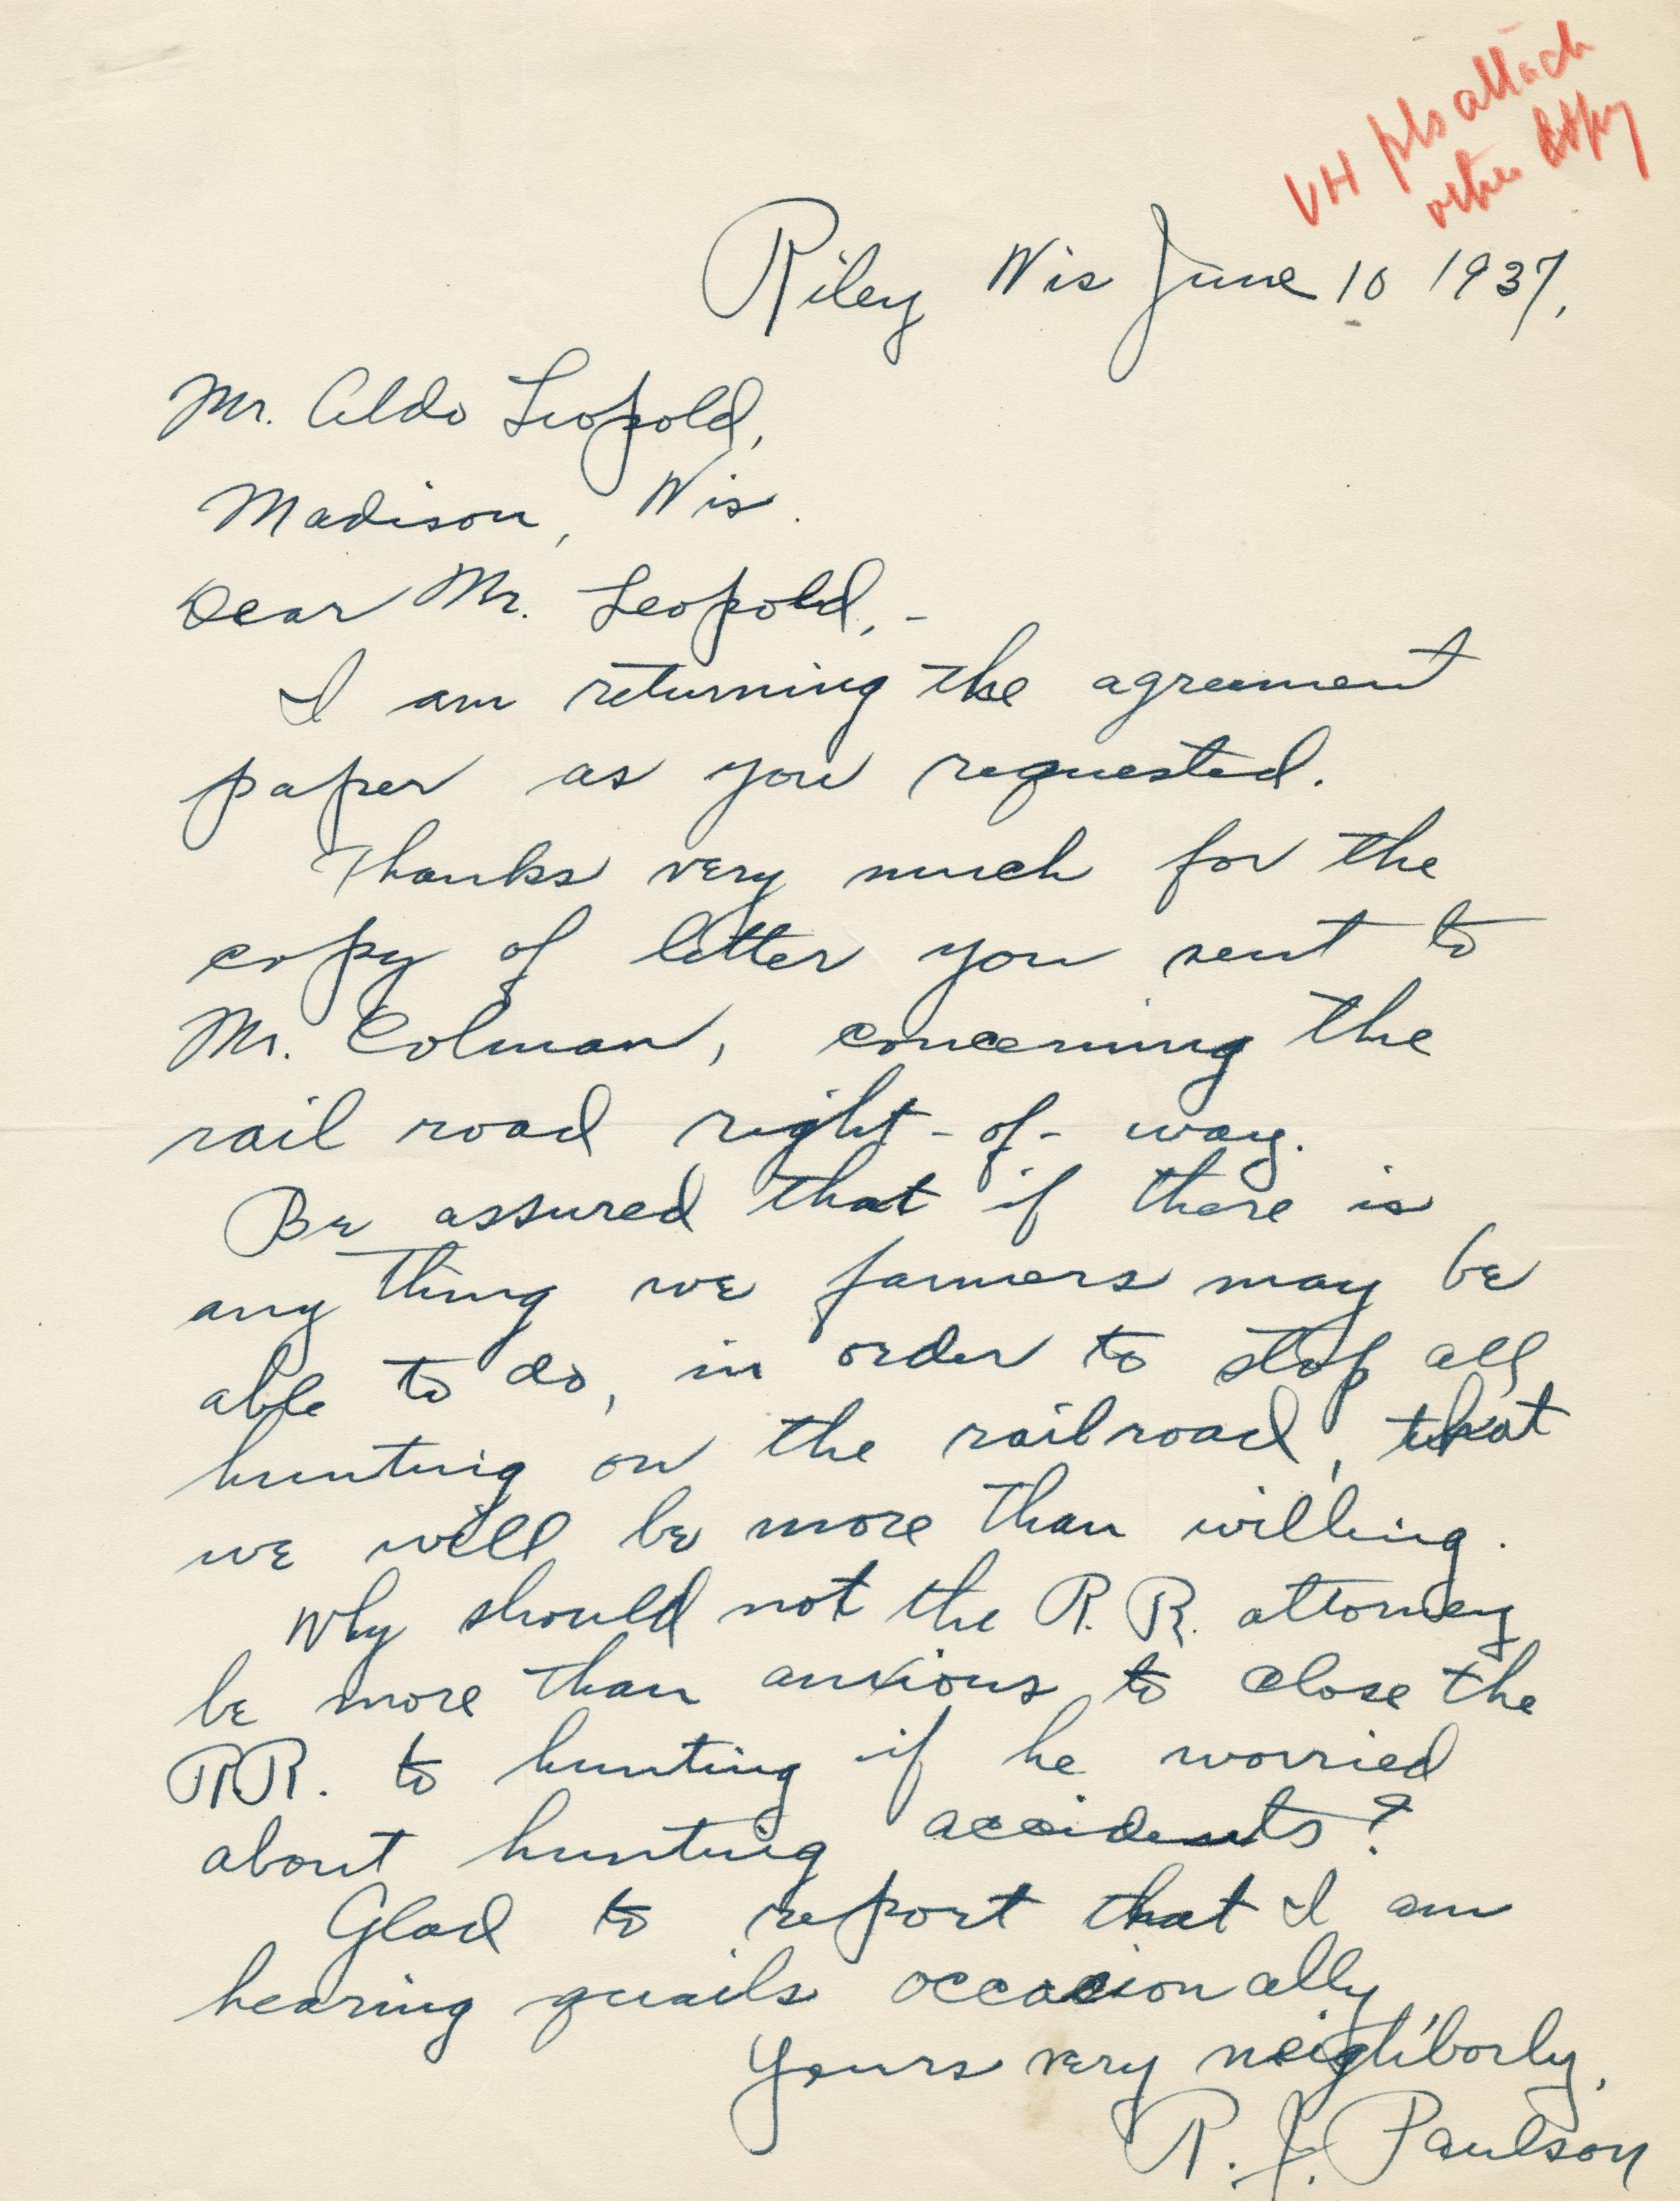 VH pls attach
other copy
Riley Wis June 10 1937.
Mr. Aldo Leopold,
Madison, Wis.
Dear Mr. Leopold,-
I am returning the agreement
paper as you requested.
Thanks very much for the
copy of letter you sent to
Mr. Colman, concerning the
rail road right-of-way.
Be assured that if there is
any thing we farmers may be
able to do, in order to stop all
hunting on the railroad, that
we will be more than willing.
Why should not the R.R. attorney
be more than anxious to close the
RR. to hunting if he worried
about hunting accidents?
Glad to report that I am
hearing quails occasionally
Yours very neighborly,
R. J. Paulson